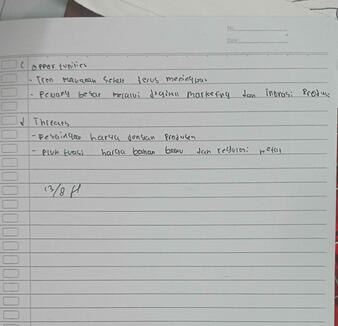 No.
Date
c opportunities
- Tren makanan sehat terus meningkat
- Peluang besar melalui digital marketing dan inovasi Produk
d Threats
- Persaingan harga dengan Produsen
- Fluktuasi harga bahan baku dan regulasi
13/8